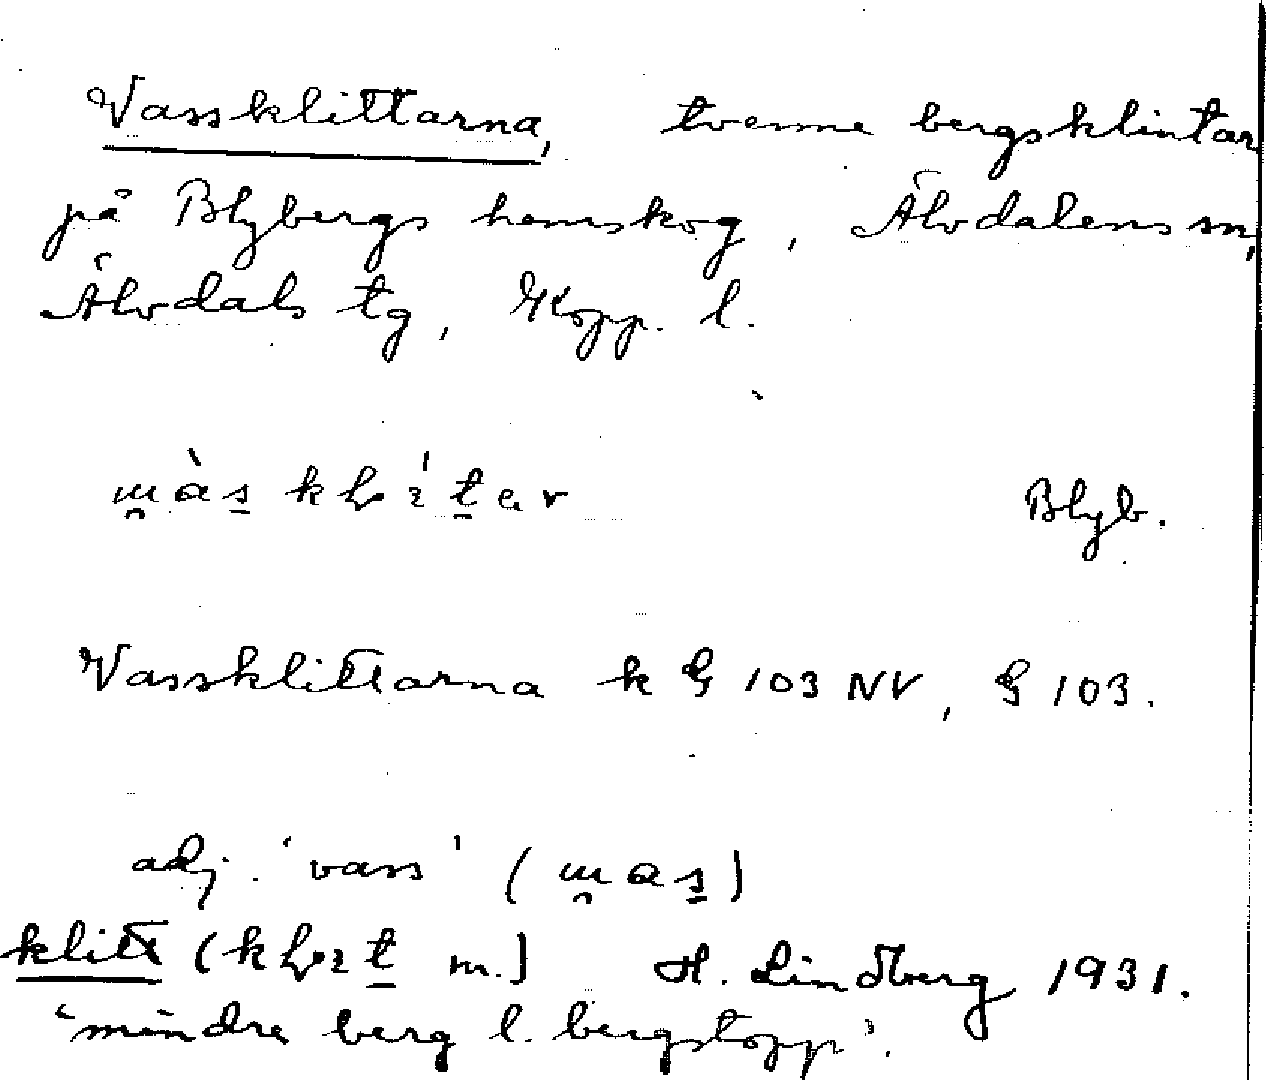 Vassklittarna, tvenne bergsklintar
på Blybergs hemskog, Älvdalens sn,
Älvdals tg, Kopp. l.
Blyb.
Vassklittarna k G 103 NV, G 103.
adj. 'vass' (u̯as̱)
klitt (kḷɪṯ m.) H. Lindberg 1931.
'mindre berg l. bergstopp'.